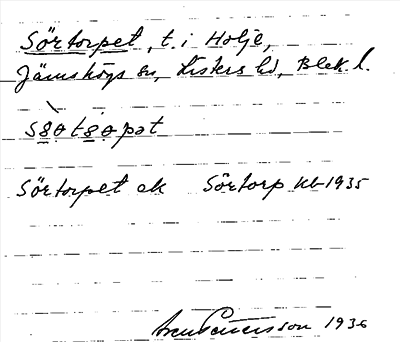 Sörtorpet, t. i Holje,
Jämshögs sn, Listers hd, Blek. l.
sö̱ṛtö̱ṛpət
Sörtorpet ek Sörtorp Kb-1935
1936